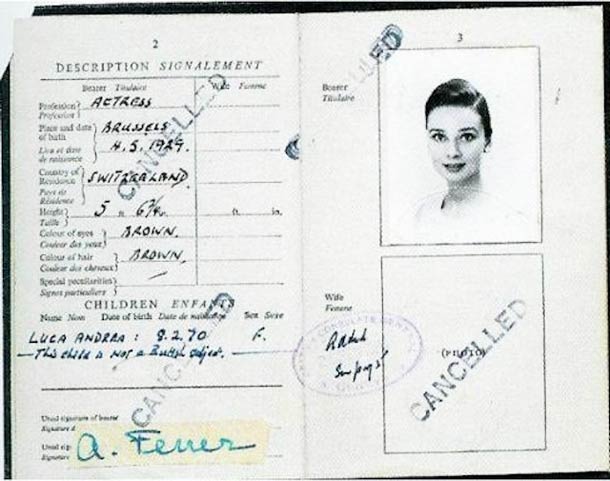 2
DESCRIPTION SIGNALEMENT
Bearer Titulaire
Wife Femme
Profession
Profession
ACTRESS
Place and date of birth
BRUSSELS
Lieu et date de naissance
4.5.1929.
Country of Residence
SWITZERLAND
Pays de Résidence
Height
Taille
5 ft. 6¾ in.
ft. in.
Colour of eyes
Couleur des yeux
BROWN.
Colour of hair
Couleur des cheveux
BROWN.
Special peculiarities
Signes particuliers
CANCELLED
CHILDREN ENFANTS
Name Nom Date of birth Date de naissance Sex Sexe
LUCA ANDREA: 8.2.70
—This child is not a British subject.—
CANCELLED
Usual signature of bearer
Signature d
Usual sig
Signature
A. Ferrer
3
CANCELLED
Bearer
Titulaire
Wife
Femme
(PHOTO)
CANCELLED